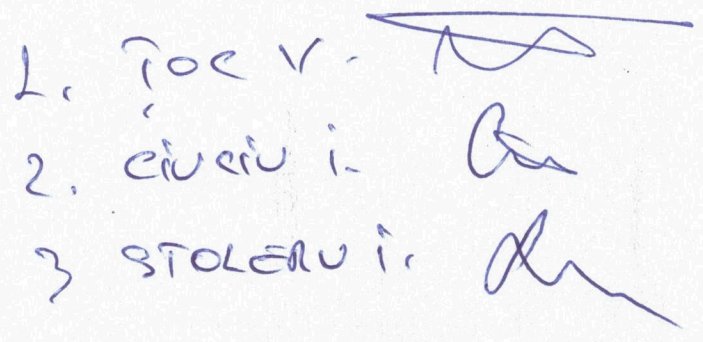 1. ȚOC V.
2. CIUCIU i.
3 STOLERU i.